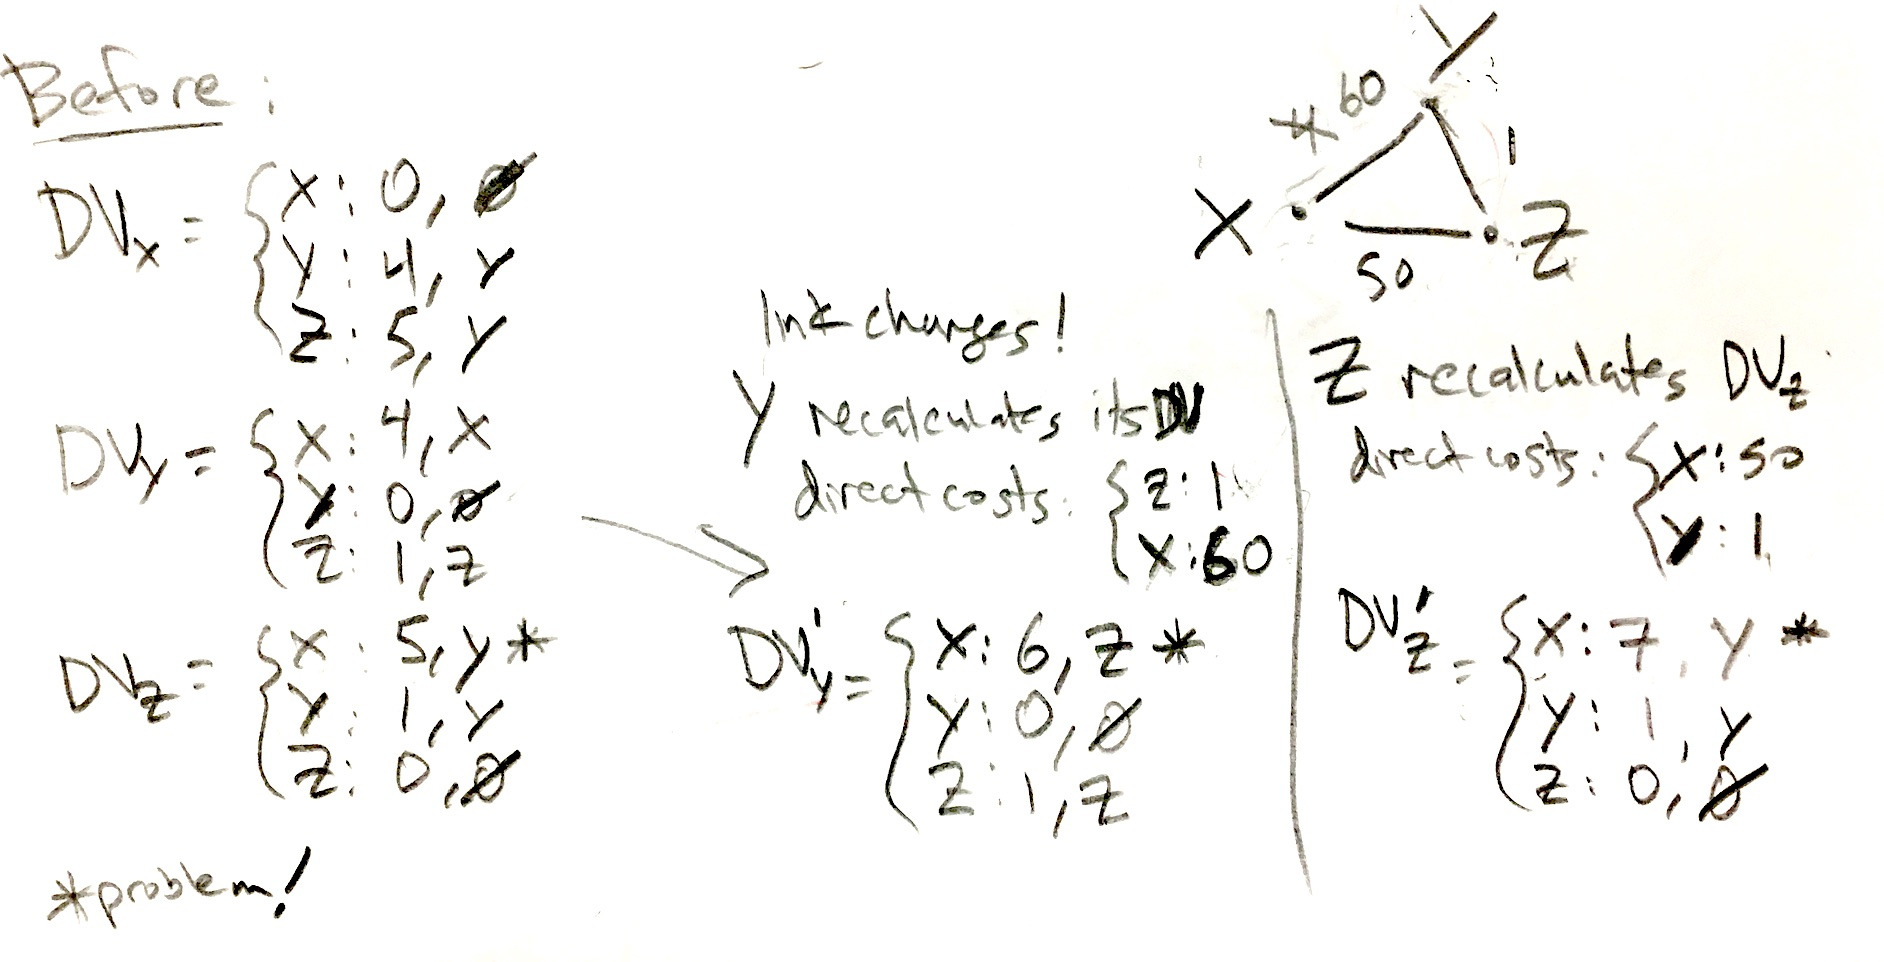 Before:
DVx = { X: 0, ∅
Y: 4, Y
Z: 5, Y
DVy = { X: 4, X
Y: 0, ∅
Z: 1, Z
DVz = { X: 5, Y *
Y: 1, Y
Z: 0, ∅
*problem!
link changes!
Y recalculates its DV
direct costs: { Z: 1
X: 60
DV'y = { X: 6, Z *
Y: 0, ∅
Z: 1, Z
Y
4 60
1
X
Z
50
Z recalculates DVz
direct costs: { X: 50
Y: 1
DV'z = { X: 7, Y *
Y: 1, Y
Z: 0, ∅